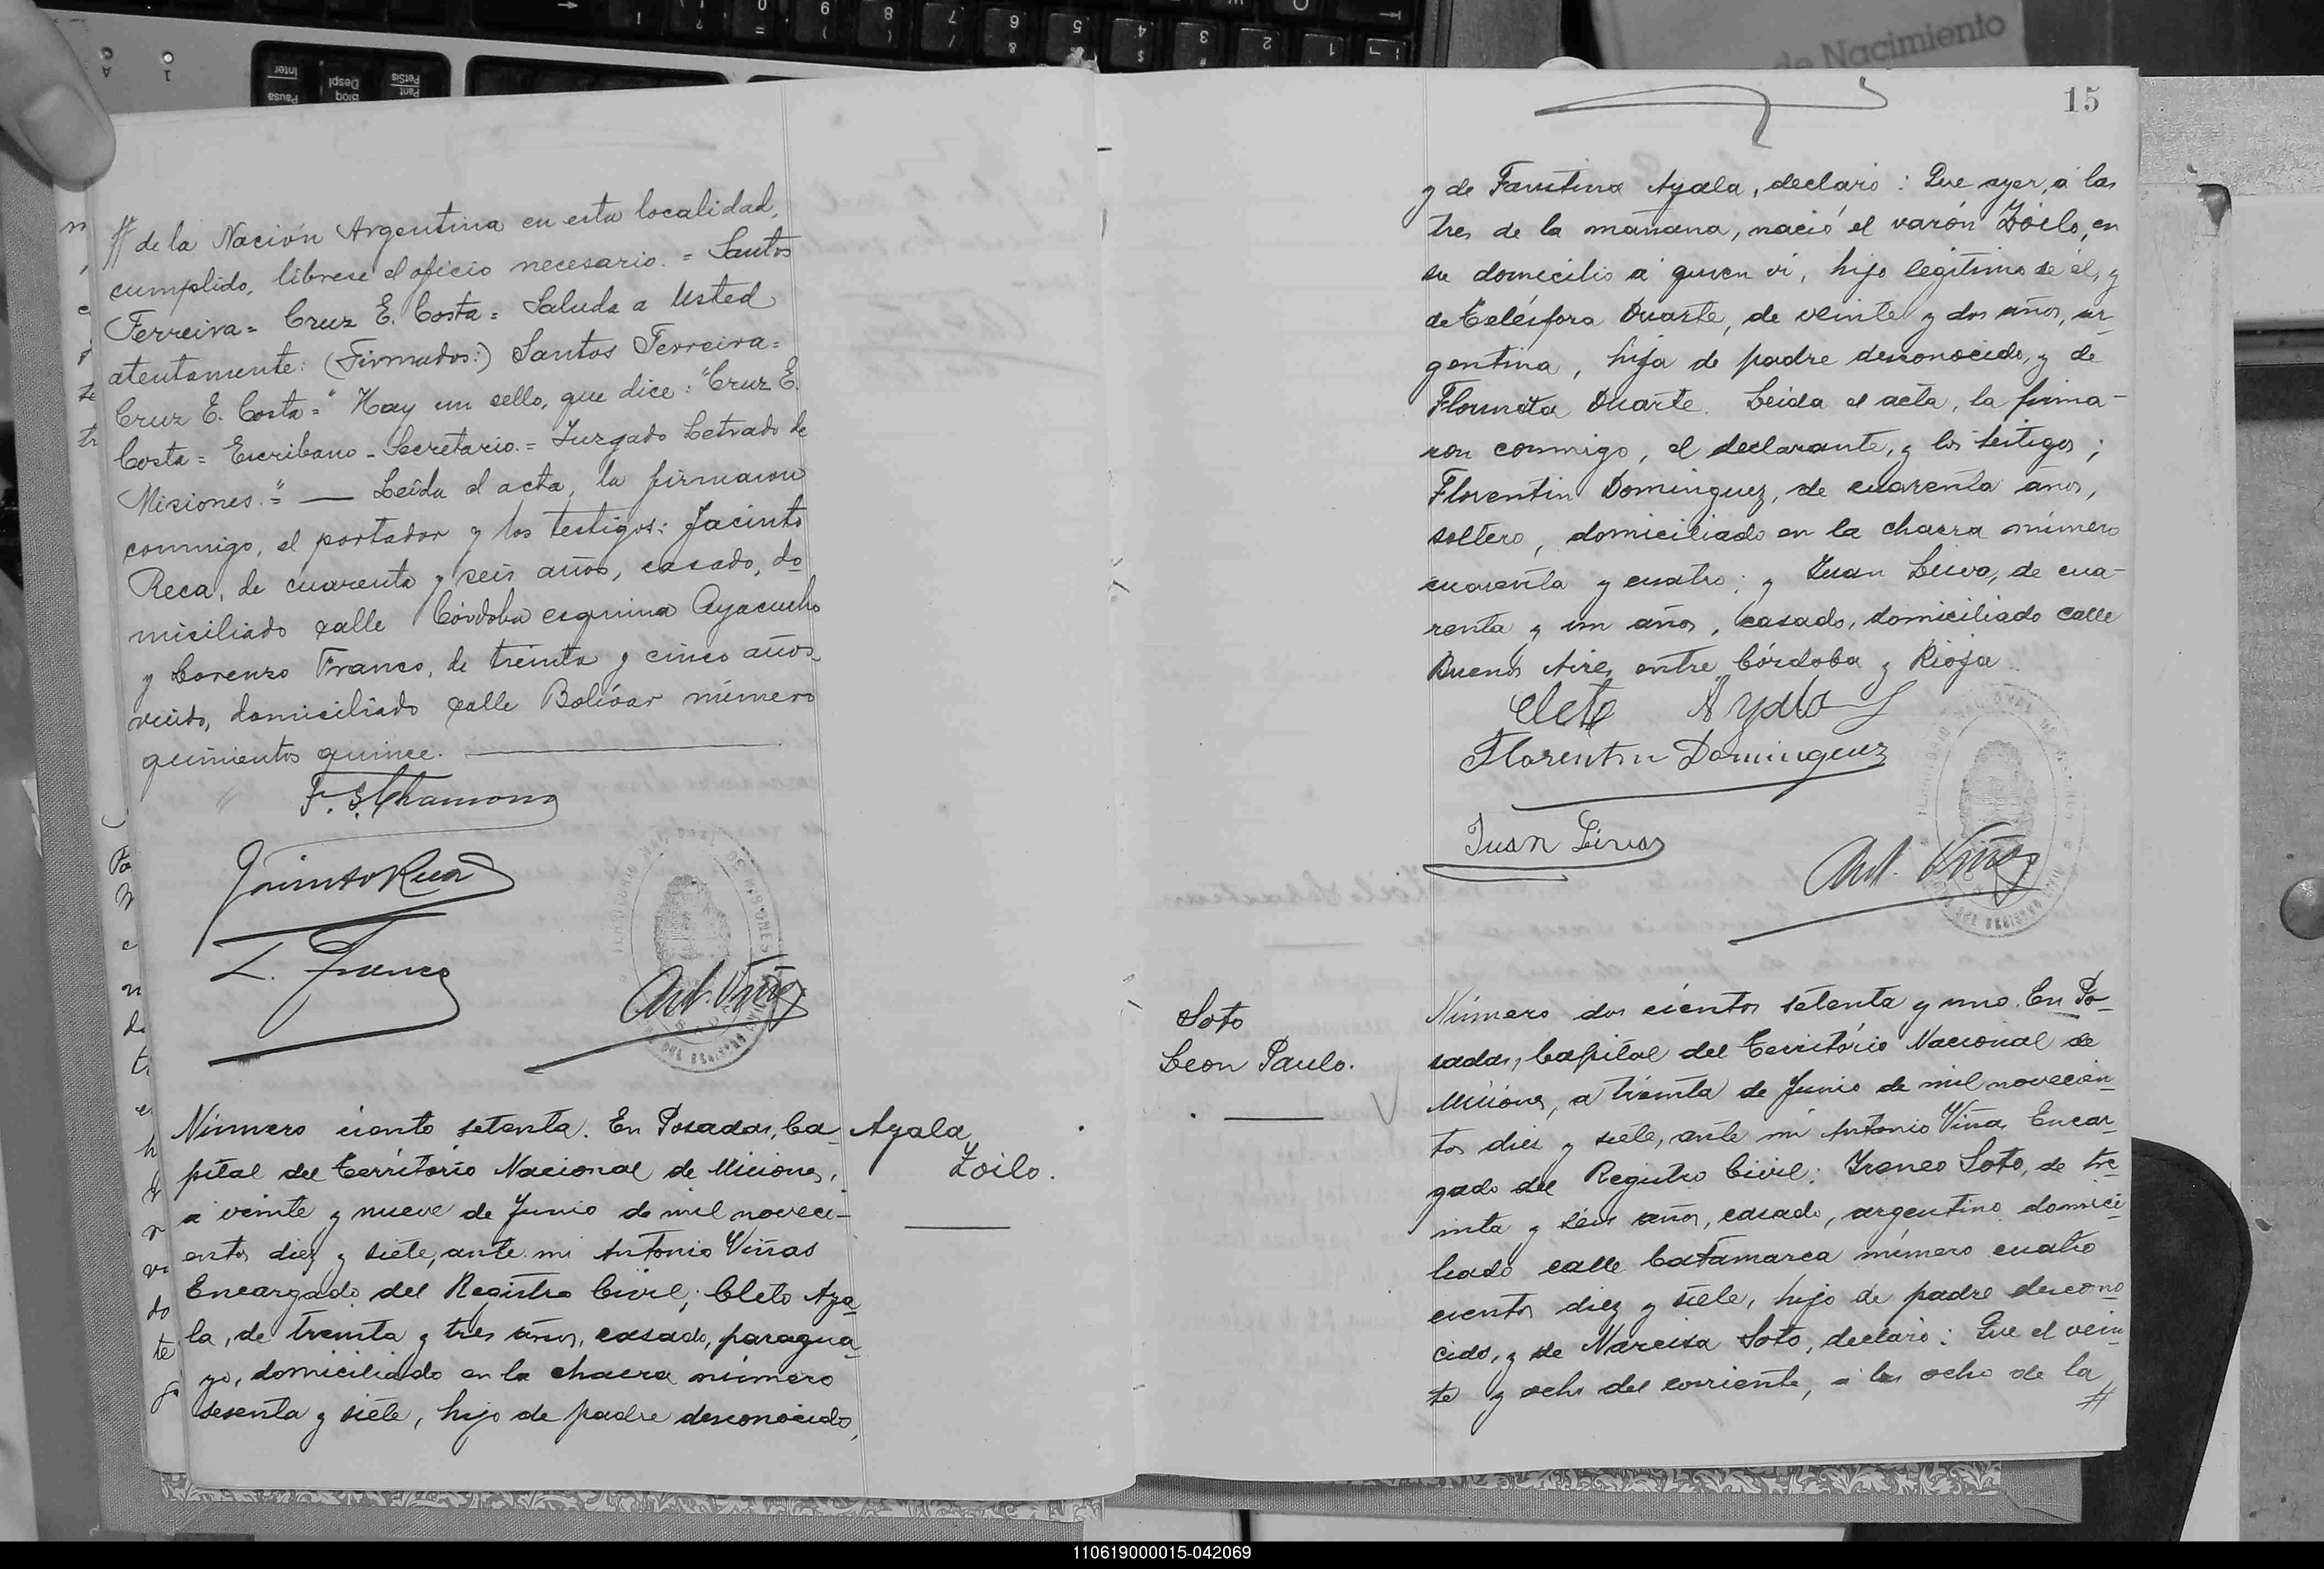 # de la Nación Argentina en esta localidad,
cumplido, líbrese el oficio necesario. = Santos
Ferreira = Cruz E. Costa = Saluda a Usted
atentamente: (Firmados:) Santos Ferreira =
Cruz E. Costa = " Hay un sello, que dice: "Cruz E.
Costa = Escribano - Secretario. = Juzgado Letrado de
Misiones." = — Leida el acta, la firmaron
conmigo, el portador y los testigos: Jacinto
Reca, de cuarenta y seis años, casado, do
miciliado calle Córdoba esquina Ayacucho
y Lorenzo Franco, de treinta y cinco años
viudo, domiciliado calle Bolívar número
quinientos quince.
Jacinto Reca
L. Franco
Ant. Viñas
Número ciento setenta. En Posadas, Ca-
pital del Território Nacional de Misiones,
a veinte y nueve de Junio de mil noveci-
entos diez y siete, ante mi Antonio Viñas
Encargado del Registro Civil; Cleto Aya
la, de treinta y tres años, casado, paragua-
yo, domiciliado en la chacra número
sesenta y siete, hijo de padre desconocido,
Ayala
Zoilo.
15
y de Faustina Ayala, declaró: Que ayer, á las
tres de la mañana, nació el varón Zóilo, en
su domicilio á quien vi, hijo legítimo de él, y
de Telésfora Duarte, de veinte y dos años, ar-
gentina, hija de padre desconocido, y de
Duarte. Leida el acta, la firma-
ron conmigo, el declarante, y los testigos;
Florentin Dominguez, de cuarenta años,
soltero, domiciliado en la chacra número
cuarenta y cuatro; y Juan Leiva, de cua-
renta y un años, casado, domiciliado calle
Buenos Aires entre Córdoba y Rioja
Cleto Ayala
Florentin Dominguez
Juan Leiva
Ant. Viñas
Soto
Leon Paulo.
Número dos cientos setenta y uno. En Po-
sadas, Capital del Território Nacional de
Misiones, a treinta de Junio de mil novecien-
tos diez y siete, ante mi Antonio Viñas Encar-
gado del Registro Civil: Ireneo Soto, de tre
inta y seis años, casado, argentino domici-
liado calle Catamarca número cuatro
cientos diez y siete, hijo de padre descono
cido, y de Narcisa Soto, declaró: Que el vein
te y ocho del corriente, á las ocho de la
#
de Nacimiento
110619000015-042069